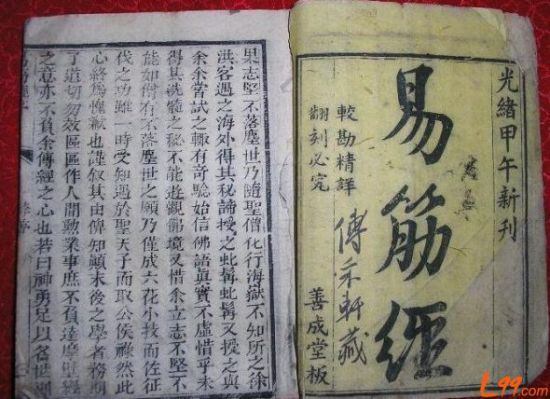 光緒甲午新刊
易筋經
較勘精詳
翻刻必究
傅采軒藏
善成堂板
果志堅不落塵世乃隨聖僧化行海嶽不知所之徐
洪客遇之海外得其秘諦授之虬髯虬髯又授之與
余余嘗試之輒有奇騐始信佛語眞實不虛惜乎未
得其洗髓之秘不能遊觀佛境又惜余立志不堅不
能如僧有不落塵世之願乃僅成六花小技而佐征
伐之功雖一時受知遇於聖天子而取公侯祿然此
心終爲愧歉也謹叙其由俾知顛末後之學者務期
了道切勿效區區作人間勳業事庶不負達摩壁經
之意亦不負余傳經之心也若曰神勇足以名世則
L99.com